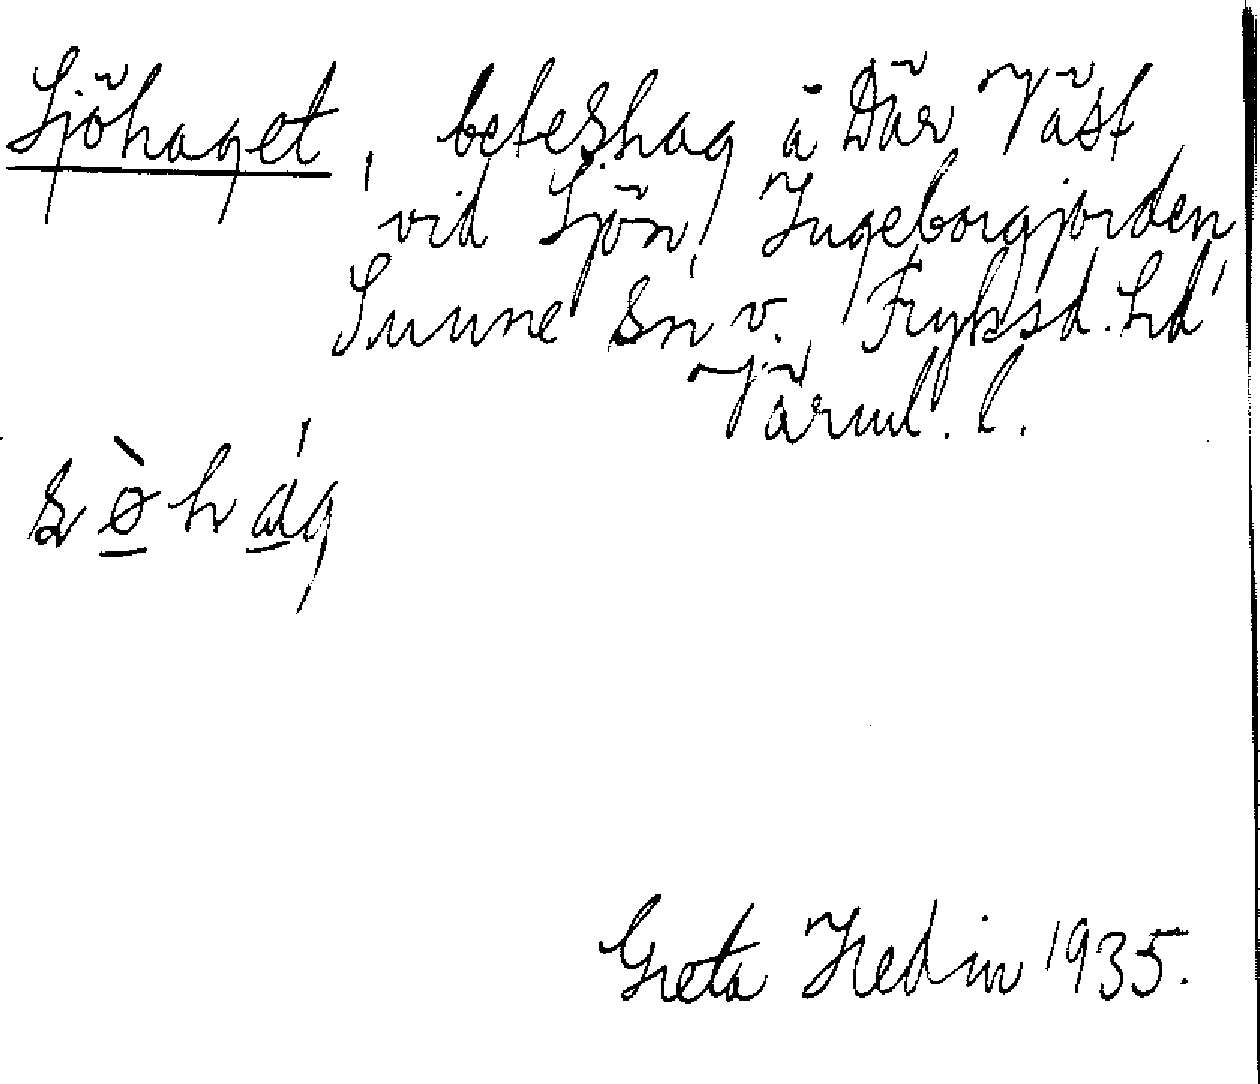 Sjöhaget, beteshag å Där Väst
vid Sjön, Ingeborgjorden,
Sunne sn v. Fryksd. hd
Värml. l.
sø̀hág
Greta Hedin 1935.